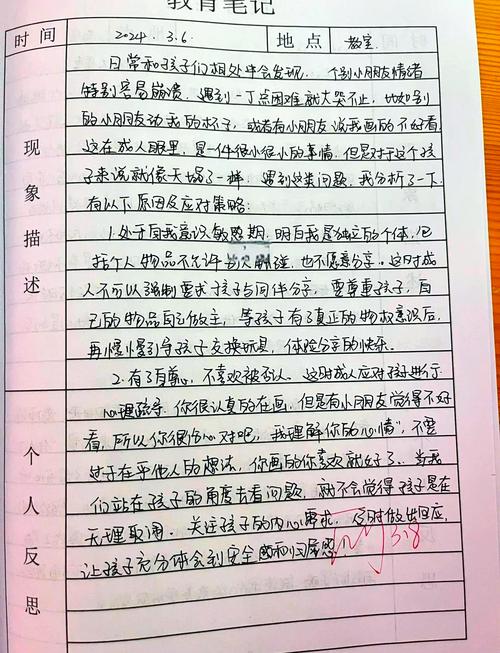 教育笔记
时间 2024. 3.6. 地点 教室
现象描述
日常和孩子们相处中会发现，个别小朋友情绪
特别容易崩溃，遇到一丁点困难就大哭不止，比如别
的小朋友动我的杯子，或者有小朋友说我画的不好看，
这在成人眼里，是一件很小很小的事情，但是对于这个孩
子来说就像天塌了一样，遇到这类问题，我分析了一下
有以下原因及应对策略：
1.处于自我意识敏感期，明白我是独立的个体，包
括个人物品不允许别人触碰，也不愿意分享。这时成
人不可以强制要求孩子与同伴分享，要尊重孩子，自
己的物品自己做主，等孩子有了真正的物权意识后，
再慢慢引导孩子交换玩具，体验分享的快乐。
2.有了自尊心，不喜欢被否认。这时成人应对孩子进行
个人反思
心理疏导，你很认真的在画，但是有小朋友觉得不好
看，所以你很伤心对吧，我理解你的心情"，不要
过于在乎他人的想法，你画的你喜欢就好了。当我
们站在孩子的角度去看问题，就不会觉得孩子是在
无理取闹。关注孩子的内心需求，及时做出回应，
让孩子充分体会到安全感和归属感！
3.8